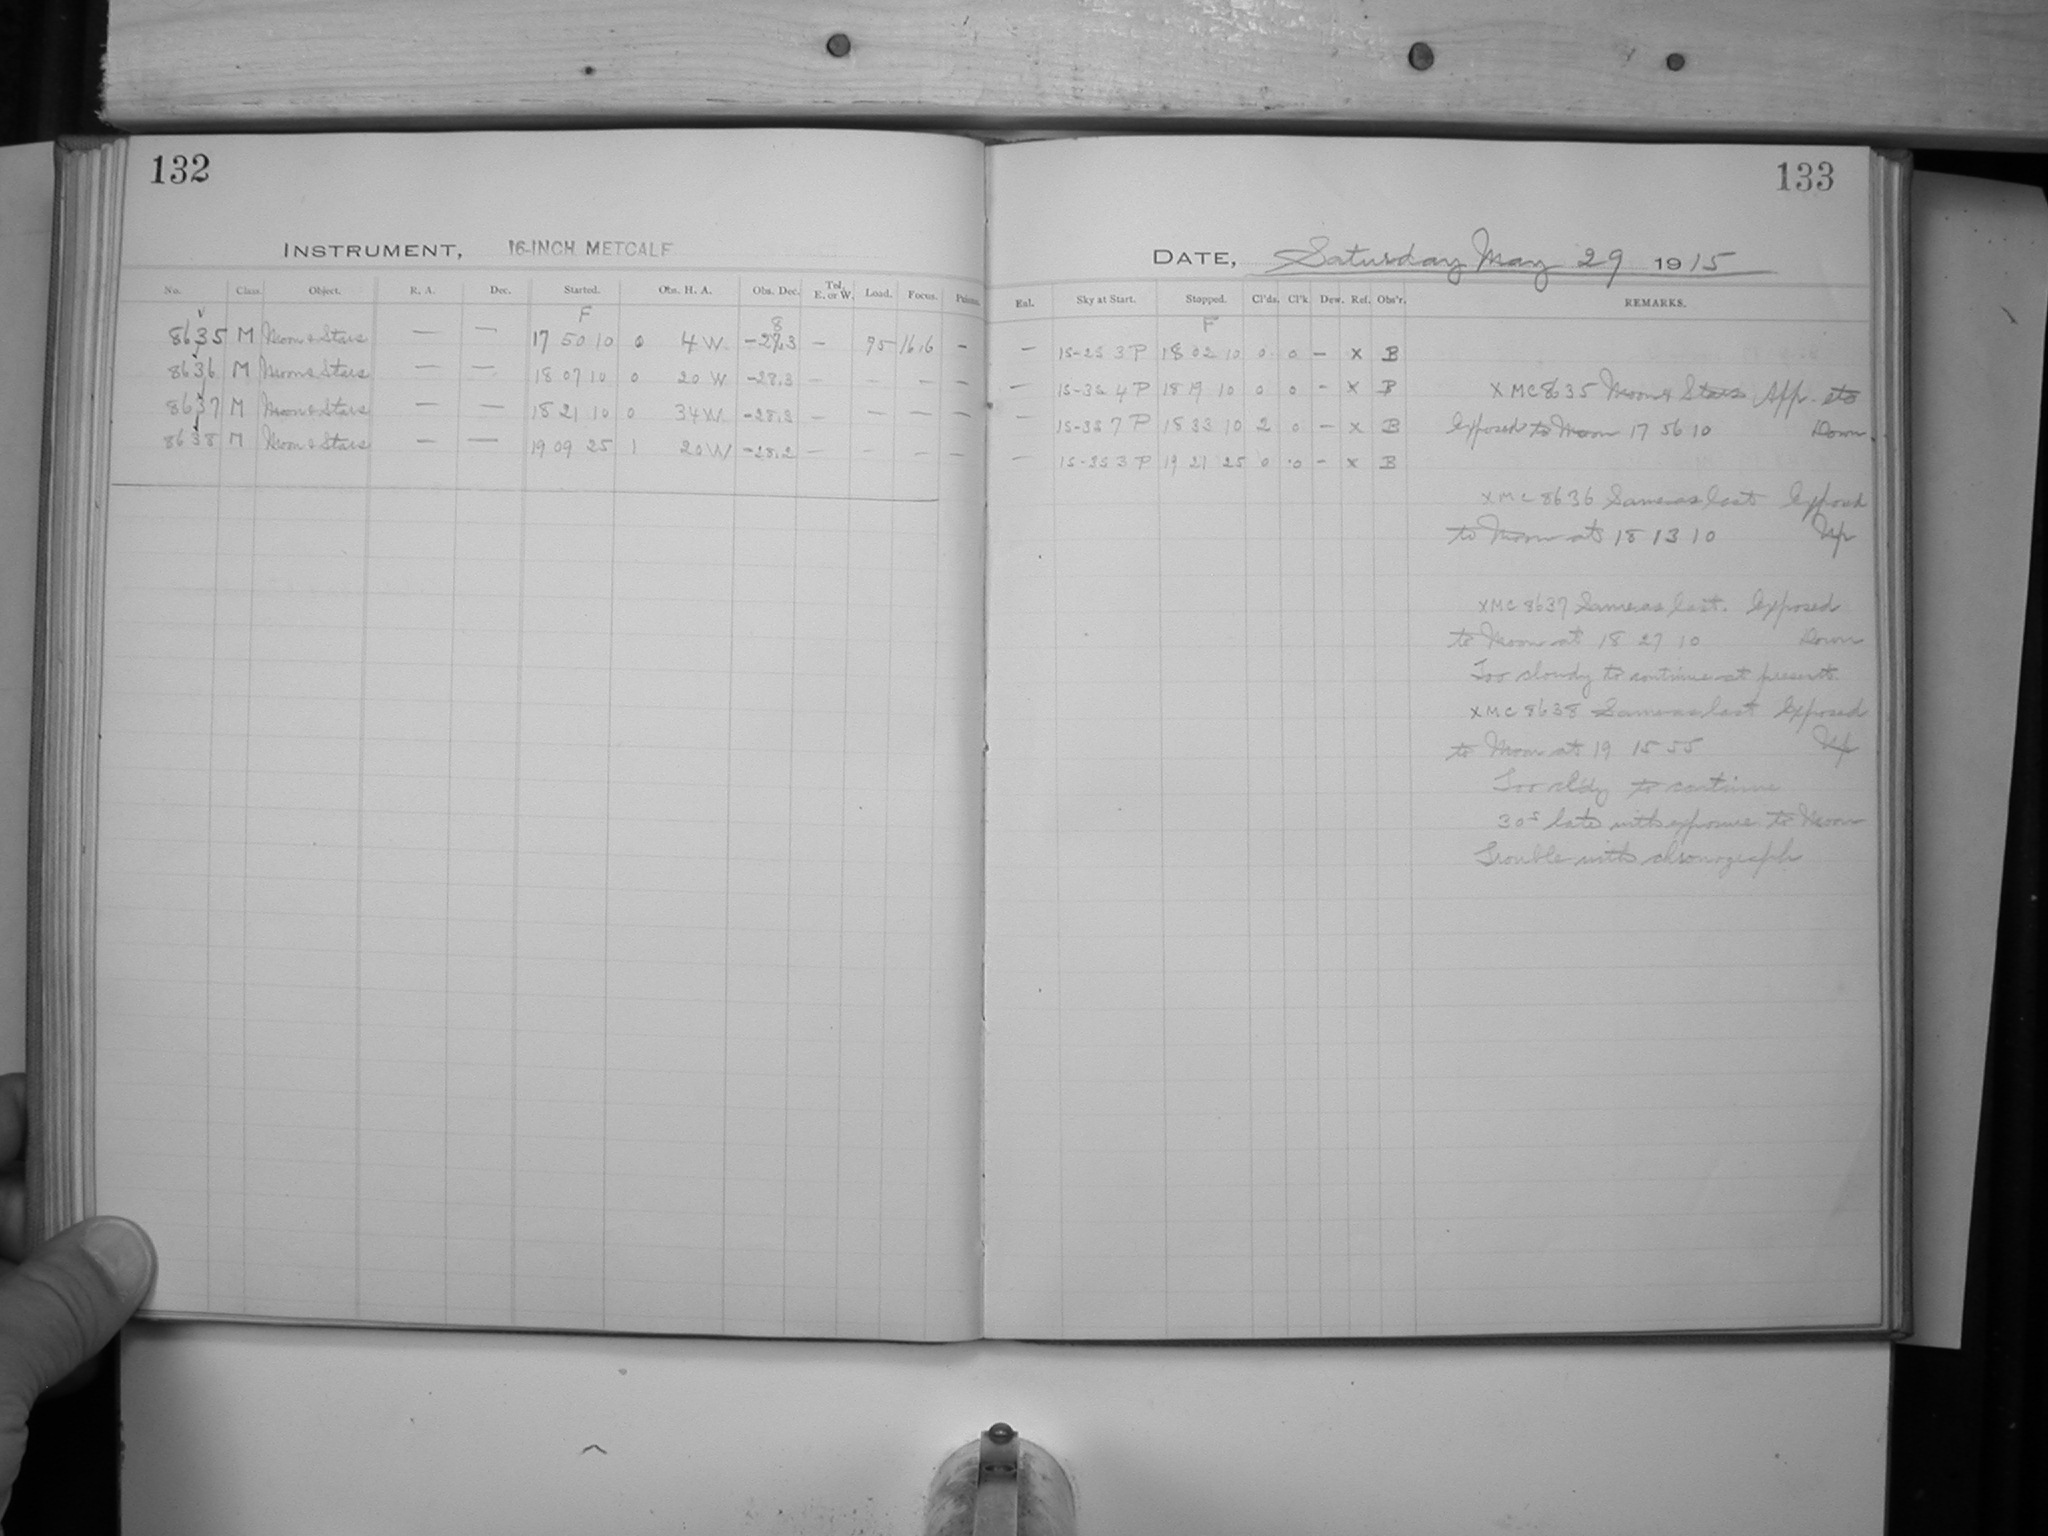 132
INSTRUMENT, 16-INCH METCALF
No. Class. Object. R. A. Dec. Started. Obs. H. A. Obs. Dec. Tel. E. or W. Load. Focus.
F 8
8635 M Moon & Stars — — 17 50 10 0 4 W -27.3 — 75 16.6 —
8636 M Moon & Stars — — 18 07 10 0 20 W -28.3 — — — —
8637 M Moon & Stars — — 18 21 10 0 34 W -28.3 — — — —
8638 M Moon & Stars — — 19 09 25 1 20 W -28.2 — — — —
133
DATE, Saturday May 29 1915
Eal. Sky at Start. Stopped. Cl'ds. Cl'k Dew. Ref. Obs'r. REMARKS.
F
— 15-25 3 P 18 02 10 0 0 — X B
— 4 P 18 19 10 0 0 — X B
— 7 P 18 33 10 2 0 — X B
— 3 P 19 21 25 0 0 — X B
X MC 8635 Moon & Stars App.
Exposed to Moon 17 56 10 Down.
X MC 8636 Same as last Exposed
to Moon at 18 13 10 Up
X MC 8637 Same as last. Exposed
to Moon at 18 27 10 Down
Too cloudy to continue at present
X MC 8638 Same as last Exposed
to Moon at 19 15 55 Up
Too cl'dy to continue
30s late with exposure to Moon
Trouble with chronograph